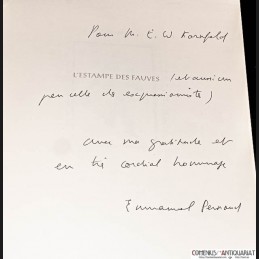 Pour M. E. W. Kornfeld
L'ESTAMPE DES FAUVES (et aussi un
peu celle des expressionnistes)
avec ma gratitude et
en très cordial hommage
Emmanuel Pernoud
COMENIUS-ANTIQUARIAT